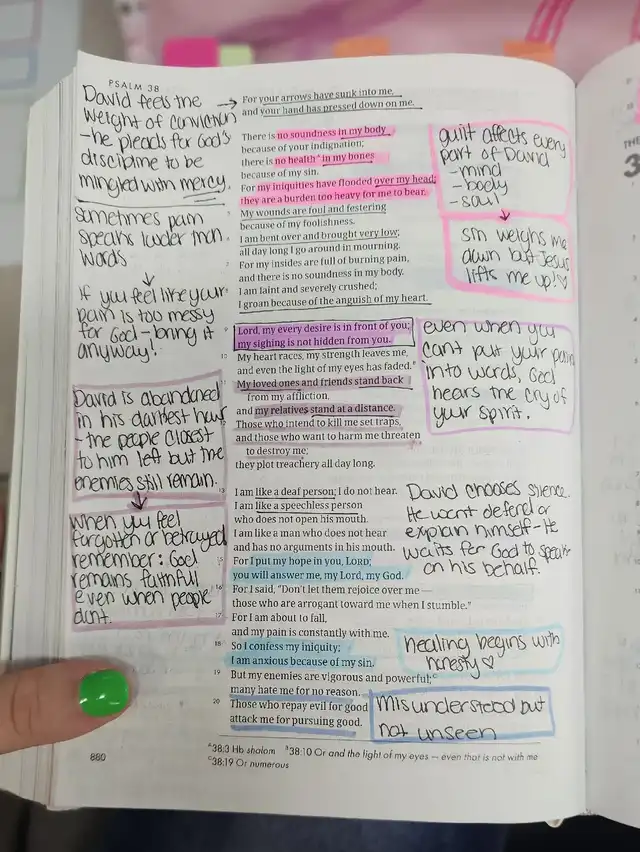 PSALM 38
David feels the
weight of conviction
-he pleads for God's
discipline to be
mingled with mercy.
sometimes pain
speaks louder than
words
If you feel like your
pain is too messy
for God - bring it
anyway!
David is abandoned
in his darkest hour
- the people closest
to him left but the
enemies still remain.
When you feel
forgotten or betrayed
remember: God
remains faithful
even when people
dont.
For your arrows have sunk into me,
and your hand has pressed down on me.
There is no soundness in my body
because of your indignation;
there is no health a in my bones
because of my sin.
For my iniquities have flooded over my head;
they are a burden too heavy for me to bear.
My wounds are foul and festering
because of my foolishness.
I am bent over and brought very low;
all day long I go around in mourning.
For my insides are full of burning pain,
and there is no soundness in my body.
I am faint and severely crushed;
I groan because of the anguish of my heart.
9 Lord, my every desire is in front of you;
my sighing is not hidden from you.
10 My heart races, my strength leaves me,
and even the light of my eyes has faded. b
11 My loved ones and friends stand back
from my affliction,
and my relatives stand at a distance.
Those who intend to kill me set traps,
and those who want to harm me threaten
to destroy me;
they plot treachery all day long.
13 I am like a deaf person; I do not hear.
I am like a speechless person
who does not open his mouth.
I am like a man who does not hear
and has no arguments in his mouth.
15 For I put my hope in you, LORD;
you will answer me, my Lord, my God.
16 For I said, “Don't let them rejoice over me —
those who are arrogant toward me when I stumble.”
17 For I am about to fall,
and my pain is constantly with me.
18 So I confess my iniquity;
I am anxious because of my sin.
19 But my enemies are vigorous and powerful; c
many hate me for no reason.
20 Those who repay evil for good
attack me for pursuing good.
guilt affects every
part of David
- mind
- body
- soul
sin weighs me
down but Jesus
lifts me up!♡
even when you
cant put your pain
into words, God
hears the cry of
your spirit.
David chooses silence.
He wont defend or
explain himself - He
waits for God to speak
on his behalf.
healing begins with
honesty ♡
misunderstood but
not unseen
a 38:3 Hb shalom b 38:10 Or and the light of my eyes — even that is not with me
c 38:19 Or numerous
880
THE
3